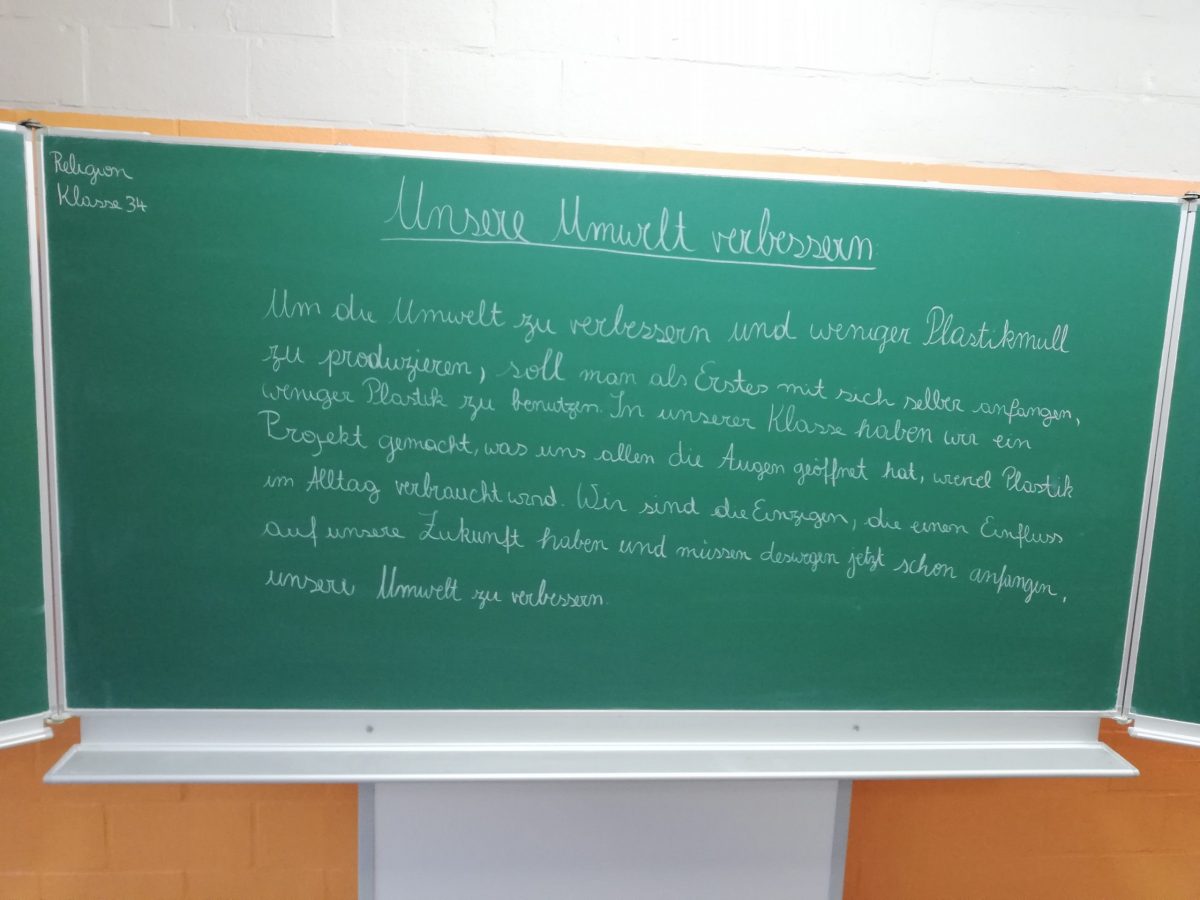 Religion
Klasse 34
Unsere Umwelt verbessern
Um die Umwelt zu verbessern und weniger Plastikmull
zu produzieren, soll man als Erstes mit sich selber anfangen,
weniger Plastik zu benutzen. In unserer Klasse haben wir ein
Projekt gemacht, was uns allen die Augen geöffnet hat, wieviel Plastik
im Alltag verbraucht wird. Wir sind die Einzigen, die einen Einfluss
auf unsere Zukunft haben und müssen deswegen jetzt schon anfangen,
unsere Umwelt zu verbessern.